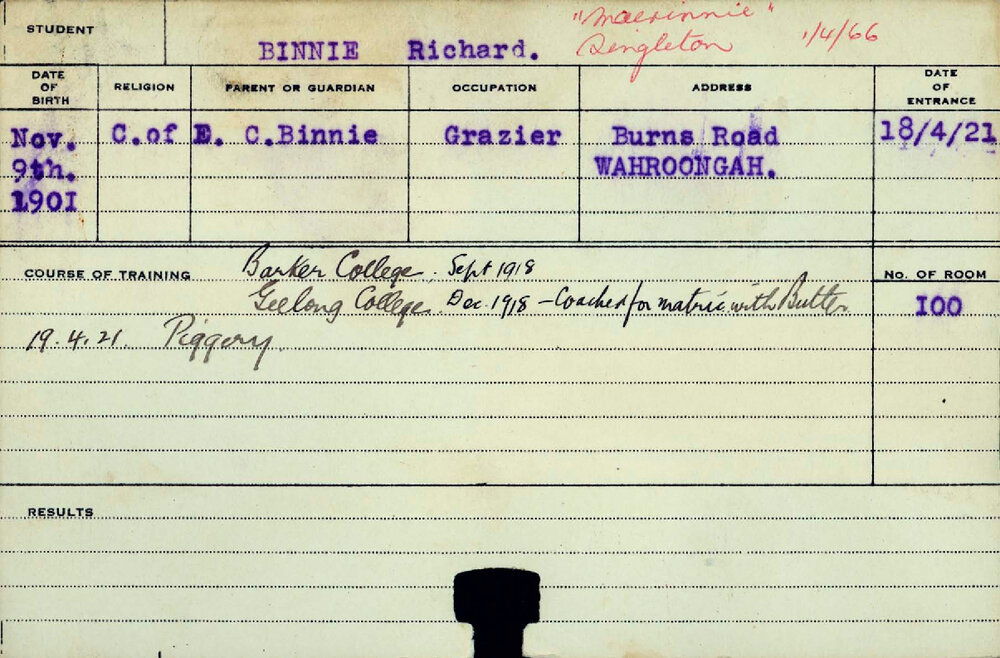 STUDENT
BINNIE Richard. "Maerinnie"
Singleton 1/4/66
DATE OF BIRTH RELIGION PARENT OR GUARDIAN OCCUPATION ADDRESS DATE OF ENTRANCE
Nov. C.of E. C.Binnie Grazier Burns Road 18/4/21
9th. WAHROONGAH.
1901
COURSE OF TRAINING Barker College. Sept 1918 No. OF ROOM
Geelong College. Dec. 1918 - Coached for matric. with Butter 100
19.4.21. Piggery.
RESULTS